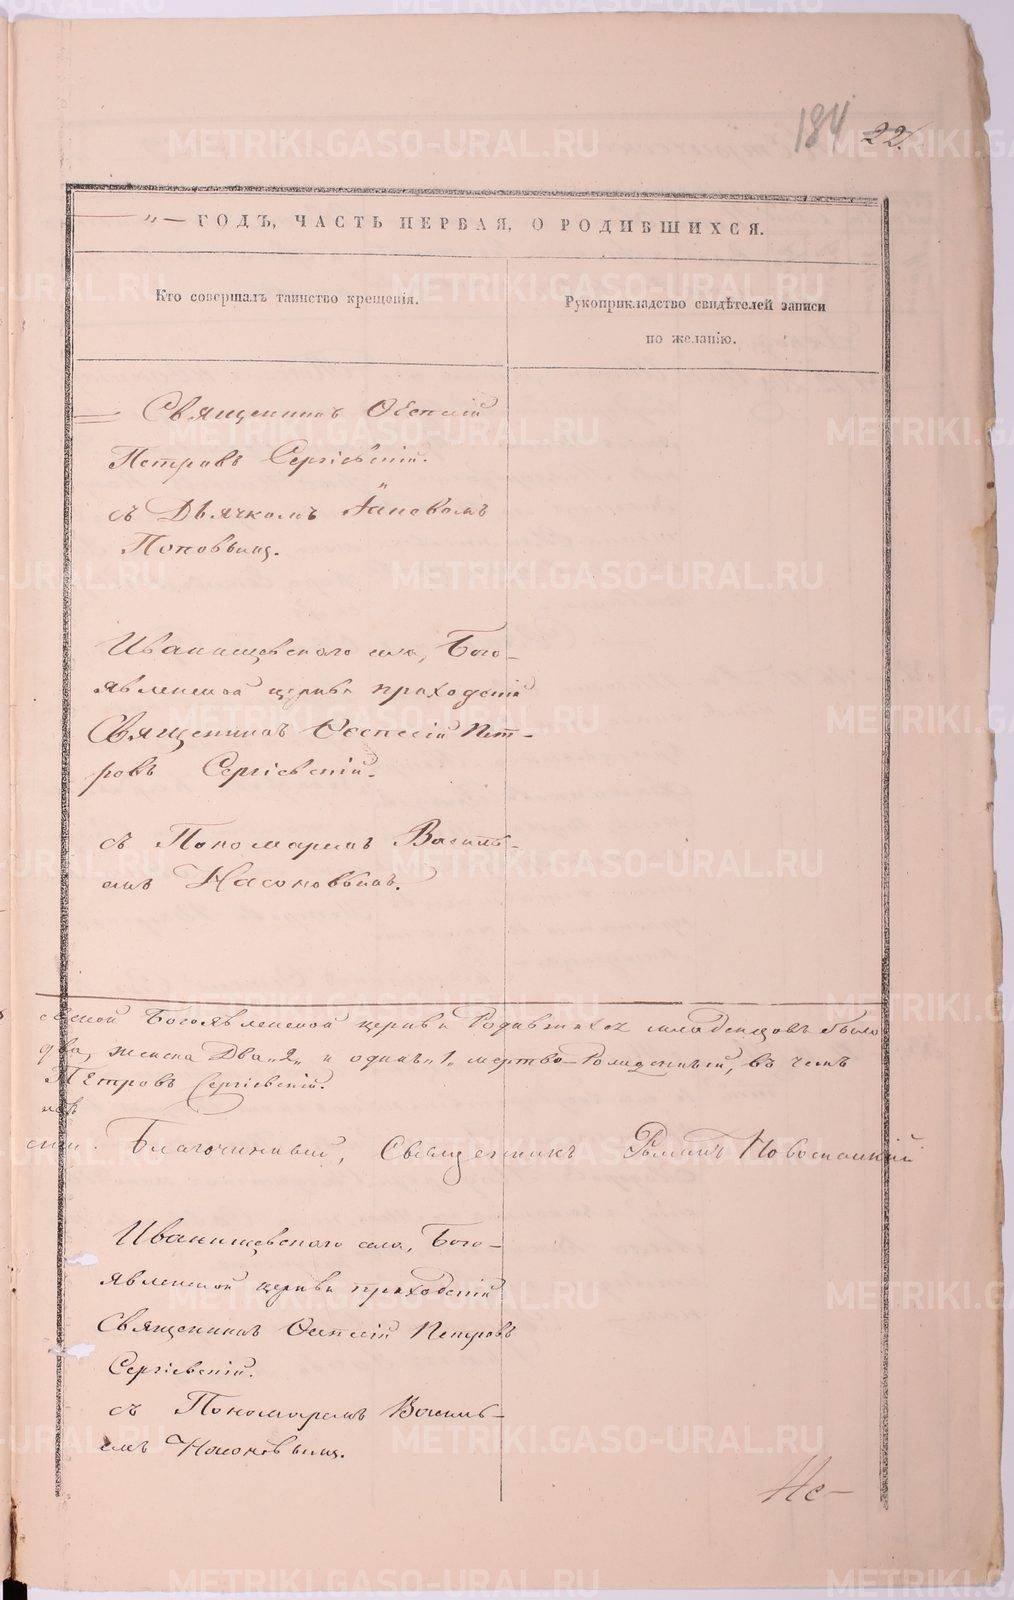 184 22.
„— ГОДЪ, ЧАСТЬ ПЕРВАЯ, О РОДИВШИХСЯ.
Кто совершалъ таинство крещенія.
Рукоприкладство свидѣтелей записи
по желанію.
Священникъ
Петровъ Сергіевскій.
съ Дьячкомъ
Поповымъ.
Иванищевскаго села, Бого-
явленской церкви приходскій
Священникъ Пет-
ровъ Сергіевскій.
съ Пономаремъ Василь-
емъ Насоновымъ.
Богоявленской церкви Родившихся младенцовъ было
два, женска Два „2„ и одинъ „1„ мертво-Рожденный, въ чемъ
Петровъ Сергіевскій.
Благочинный, Священникъ Романъ
Иванищевскаго села, Бого-
явленской церкви приходскій
Священникъ Петровъ
Сергіевскій.
съ Пономаремъ Василь-
емъ Насоновымъ.
Ис-
METRIKI.GASO-URAL.RU